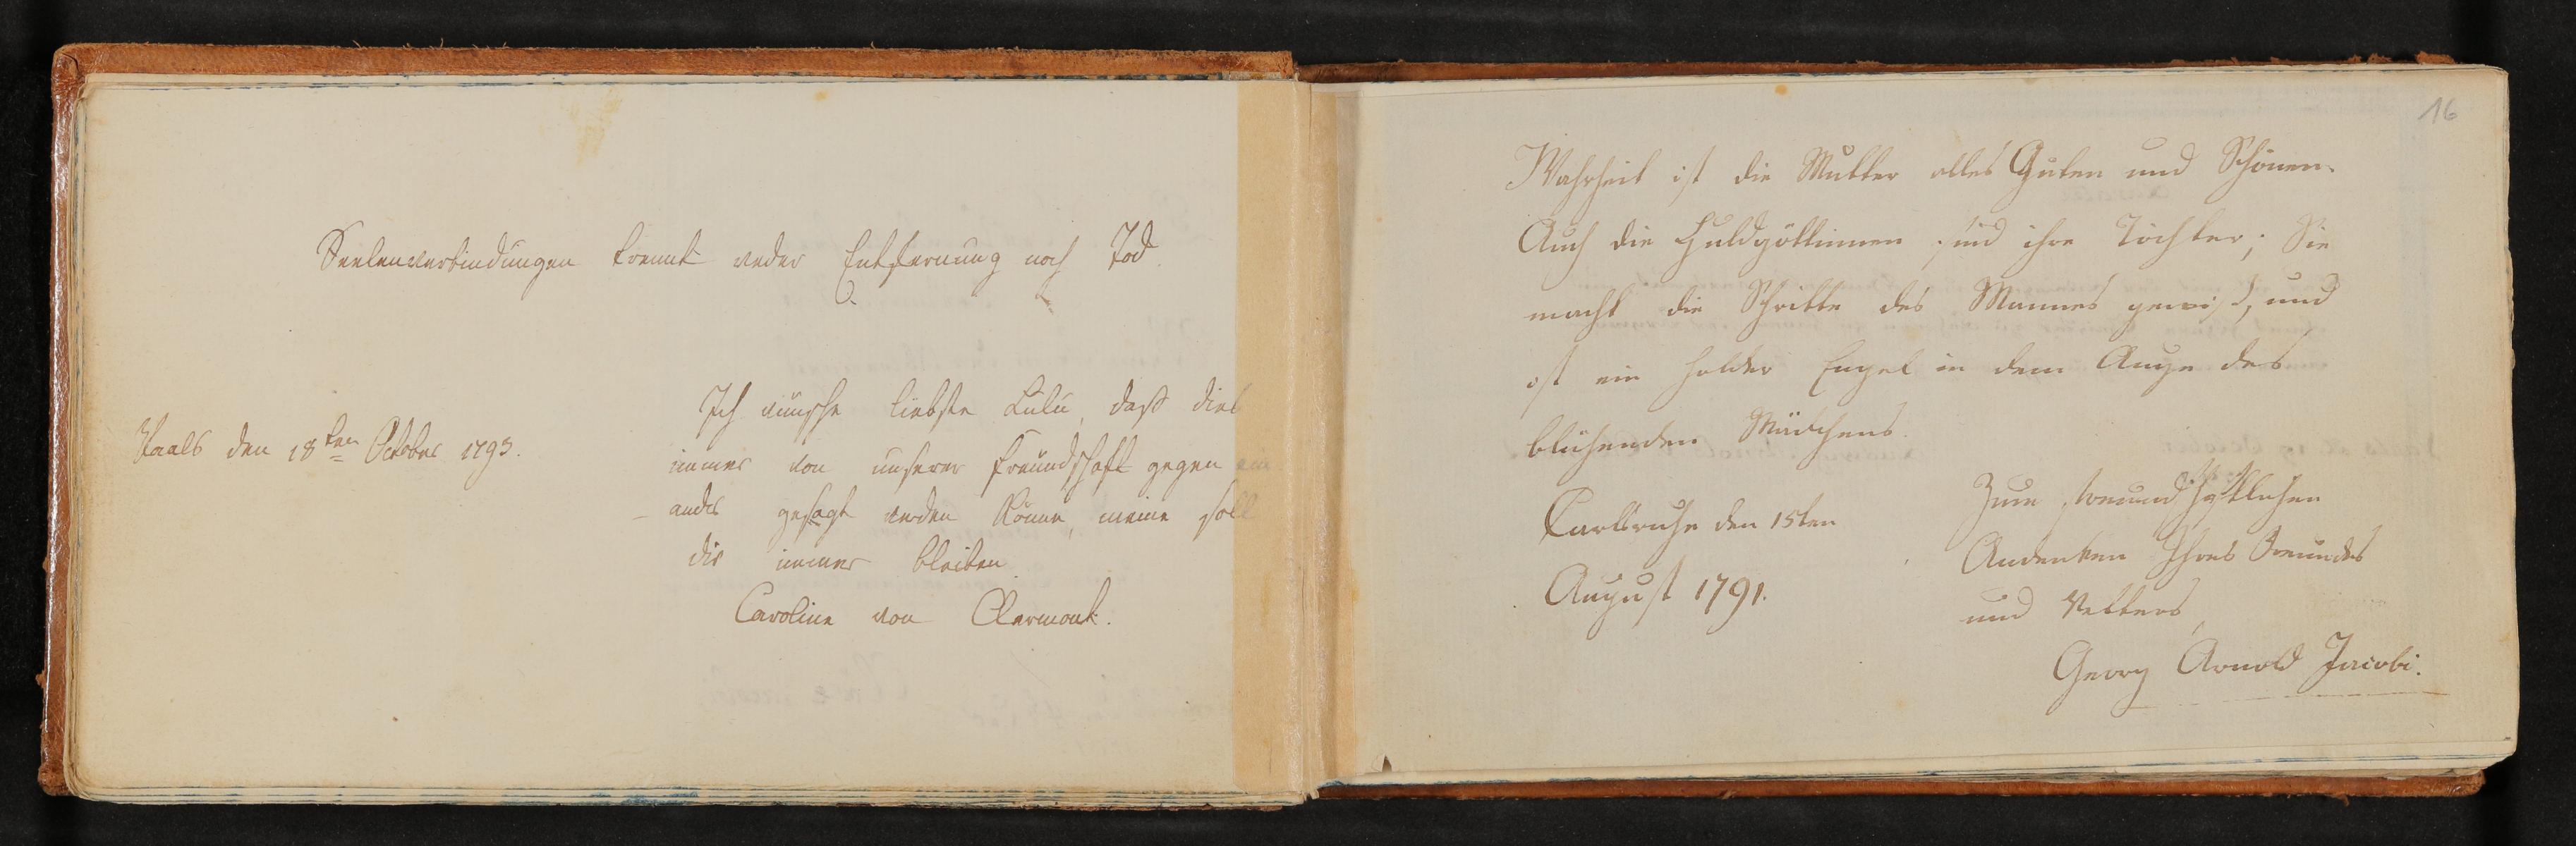 Seelenverbindungen trennt weder Entfernung noch Tod.
Vaals den 18ten October 1793.
Ich wünsche liebste Lulu, daß dies
immer von unserer Freundschaft gegen ein
ander gesagt werden könne, meine soll
dir immer bleiben
Caroline von Clermont.
16
Wahrheit ist die Mutter alles Guten und Schönen.
Auch die Huldgöttinnen sind ihre Töchter; Sie
macht die Schritte des Mannes gewiß, und
ist ein holder Engel in dem Auge des
blühenden Mädchens.
Carlsruhe den 15ten
August 1791.
Zum freundschaftlichen
Andenken Ihres Freundes
und Vetters,
Georg Arnold Jacobi.